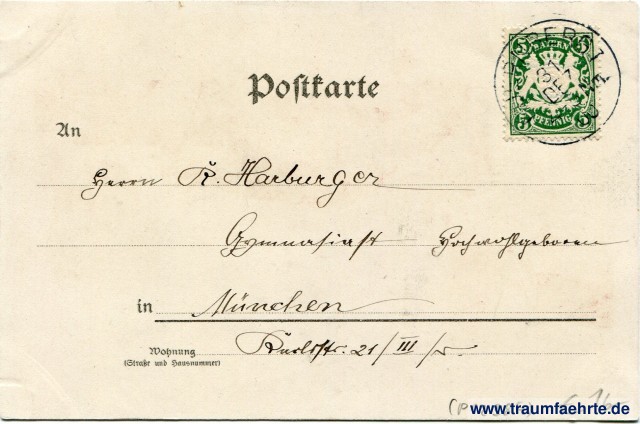 5 5
BAYERN
31
DEZ
PFENNIG
5 5
Postkarte
An
Herrn R. Harburger
Gymnasiast Hochwohlgeboren
in München
Wohnung
(Straße und Hausnummer)
Karlstr. 21/III/r.
www.traumfaehrte.de